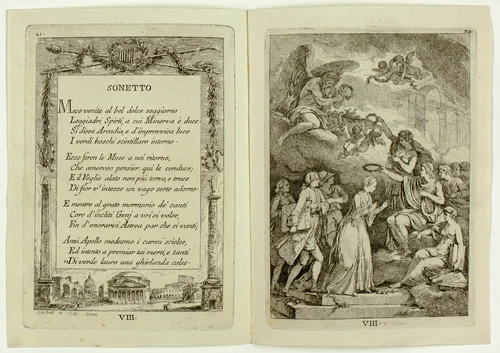 21.
SONETTO
Meco venite al bel dolce soggiorno
Leggiadri Spirti, a cui Minerva è duce.
Sì disse Arcadia, e d'improvvisa luce
I verdi boschi scintillaro intorno.
Ecco feron le Muse a noi ritorno,
Che amoroso pensier qui le conduce;
E il Veglio alato non più torvo, e truce
Di fior v'intesse un vago serto adorno.
E mentre al grato mormorio de' canti
Coro d'incliti Genj a voi si volse,
Ed in d'onorarvi Astrea par che si vanti,
Anzi Apollo medesmo i carmi sciolse,
Ed intento a premiar tai merti, e tanti
Di verde lauro una ghirlanda colse.
VIII.
VIII.